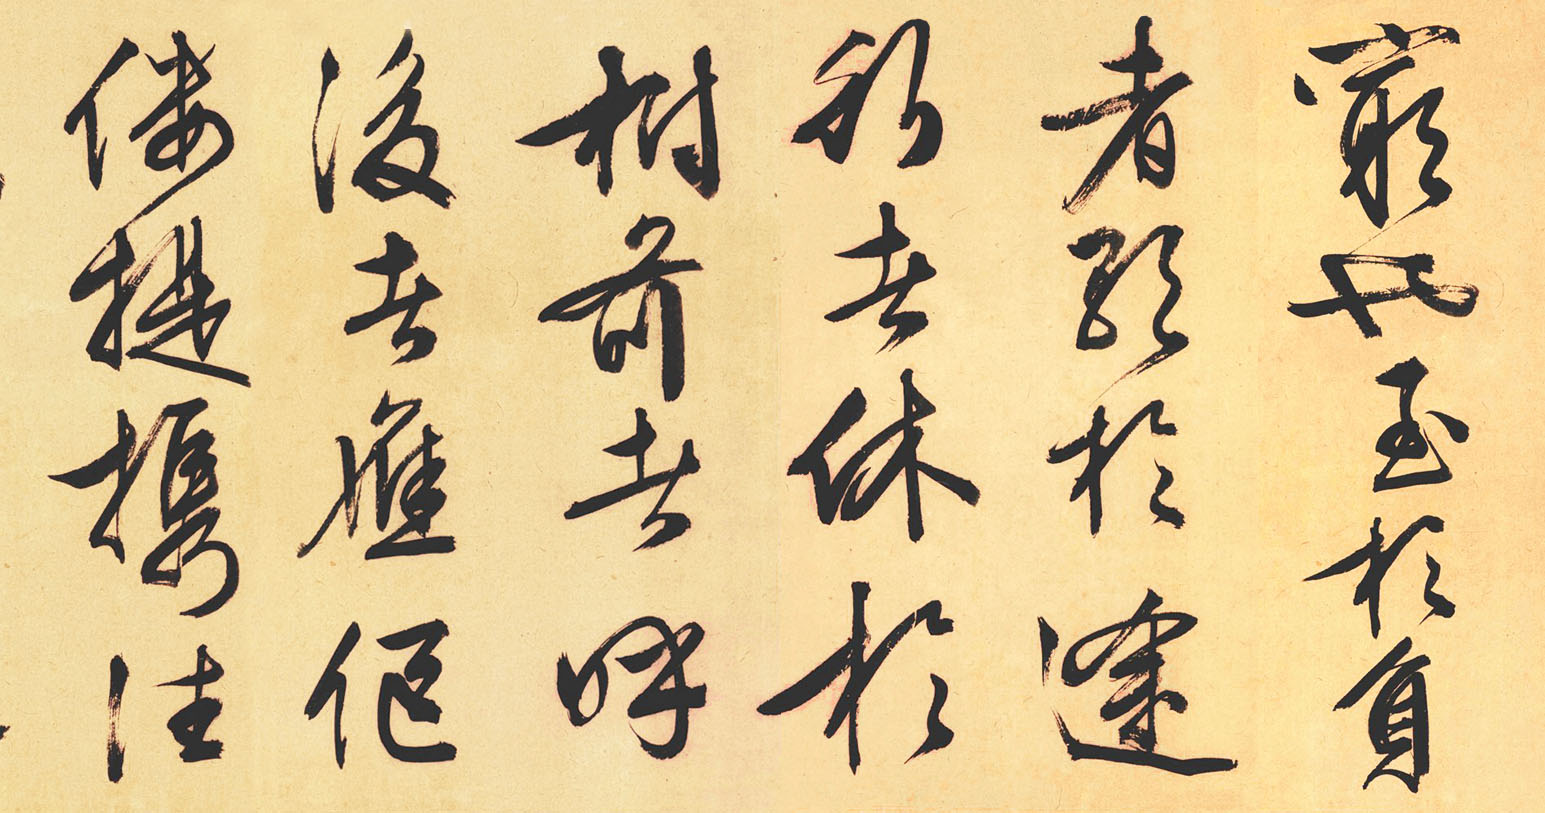 窮也至於負
者歌於途
行者休於
樹前者呼
後者應傴
僂提攜往